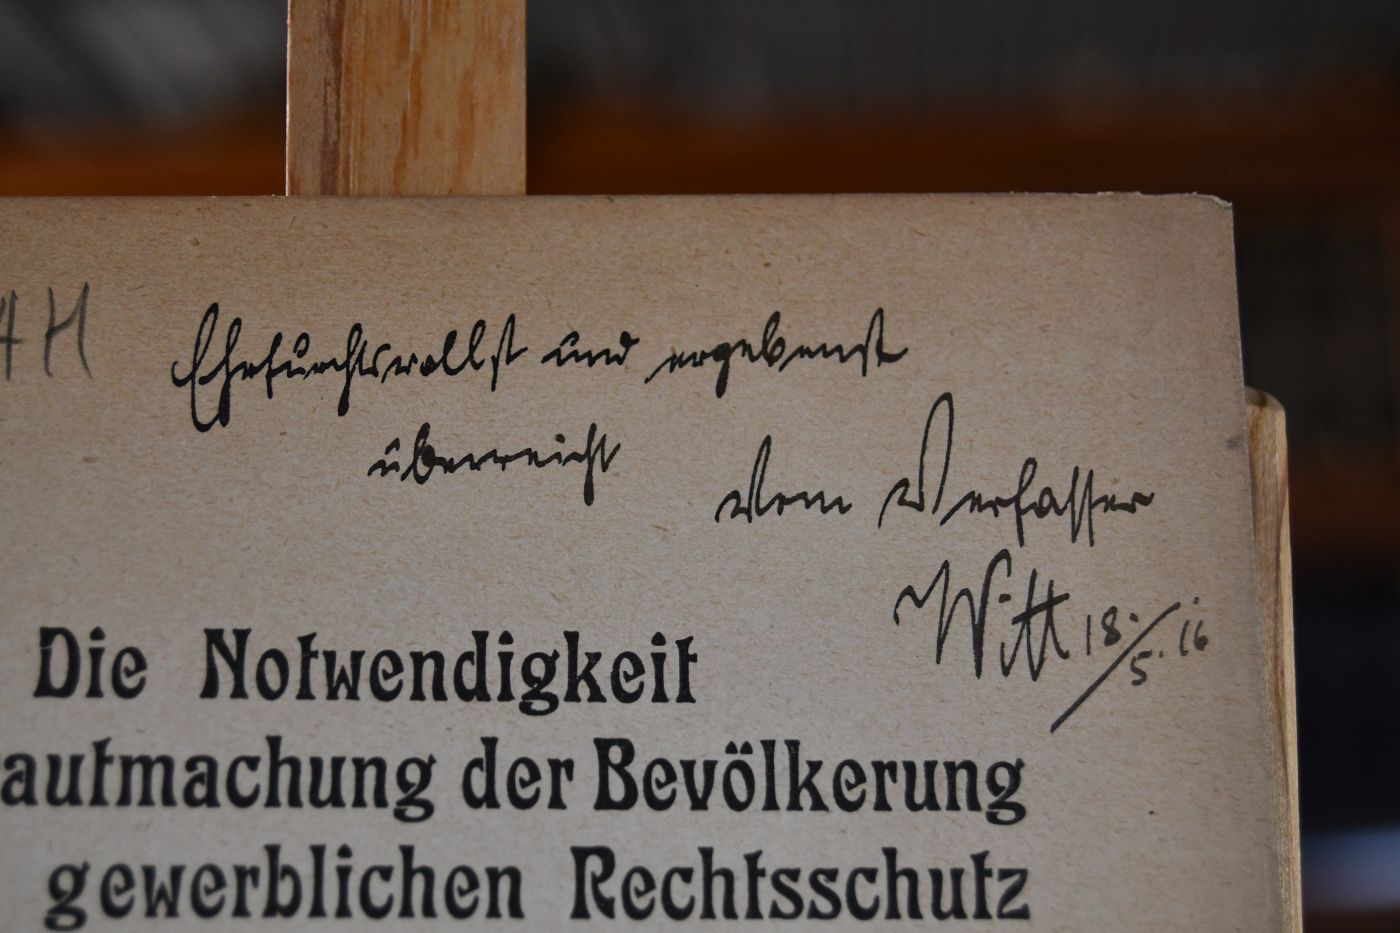 H
Ehrfurchtsvollst und ergebenst
überreicht
Vom Verfasser
Witt 18./5. 16
Die Notwendigkeit
autmachung der Bevölkerung
gewerblichen Rechtsschutz